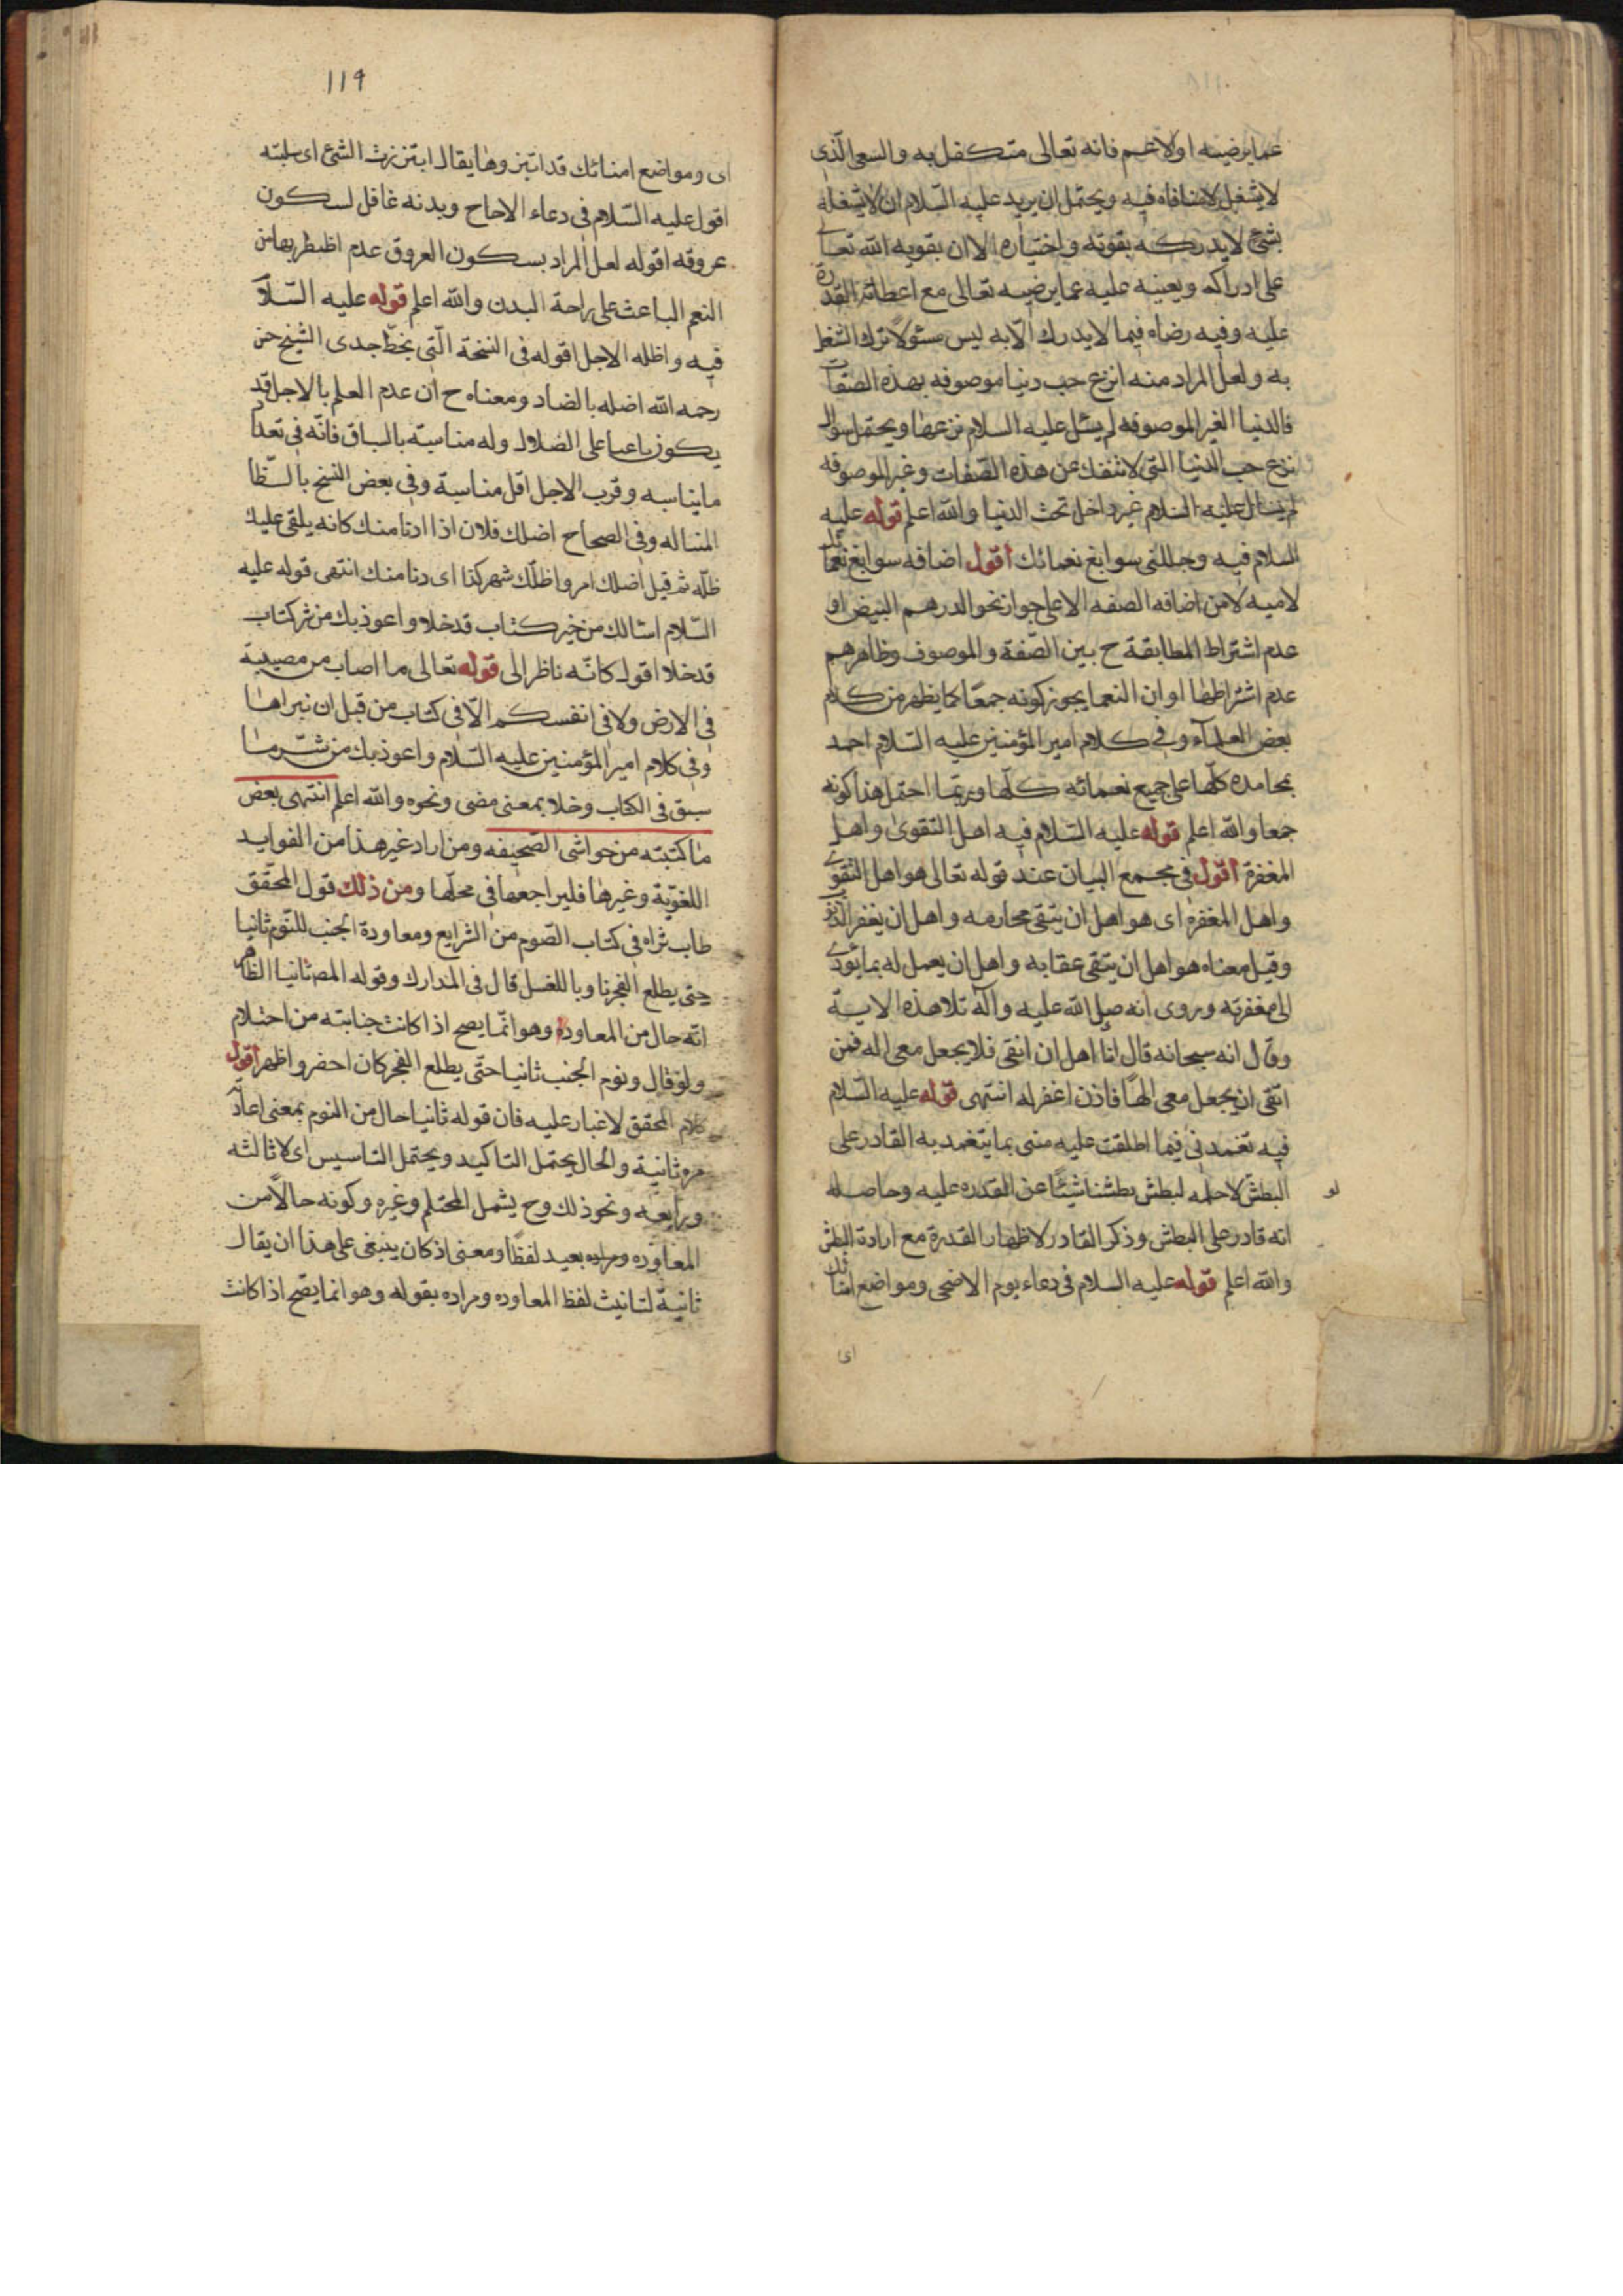 عما يرضيه اولا غم فانه تعالى متكفل به والسعى الذى
لا يشغل لا منافاة فيه ويحتمل ان يريد عليه السلام ان لا يشغله
بشئ لا يدركه بقوته واختياره الا ان يقويه الله تعالى
على ادراكه ويعينه عليه عما يرضيه تعالى مع اعطائه القدرة
عليه وفيه رضاه فيما لا يدرك الا به ليس مسئولا ترك الشغل
به ولعل المراد منه انزع حب دنيا موصوفه بهذه الصفات
فالدنيا الغير الموصوفه لم يسئل عليه السلام نزعها ويحتمل سؤال
نزع حب الدنيا التى لا تنفك عن هذه الصفات وغير الموصوفه
لم يسئل عليه السلام غير داخل تحت الدنيا والله اعلم قوله عليه
السلام فيه وجللنى سوابغ نعمائك اقول اضافه سوابغ نعمائك
لاميه لا من اضافه الصفه الا على جواز نحو الدرهم البيض او
عدم اشتراط المطابقة ح بين الصّفة والموصوف وظاهرهم
عدم اشتراطها او ان النعما يجوز كونه جمعا كما يظهر من كلام
بعض العلمآء وفى كلام امير المؤمنين عليه السّلام احمد
بمحامده كلّها على جميع نعمائه كلّها وربّما احتمل هذا كونه
جمعا والله اعلم قوله عليه السّلام فيه اهل التقوى واهل
المغفرة اقول فى مجمع البيان عند قوله تعالى هو اهل التقوى
واهل المغفرة اى هو اهل ان يتقى محارمه واهل ان يغفر الذنوب
وقيل معناه هو اهل ان يتقى عقابه واهل ان يعمل له بما يؤدى
الى مغفرته وروى انه صلى الله عليه وآله تلا هذه الاية
وقال انه سبحانه قال انا اهل ان اتقى فلا يجعل معى اله فمن
اتّقى ان يجعل معى الهاً فاذن اغفر له انتهى قوله عليه السّلام
فيه تغمدنى فيما اطلعت عليه منى بما يتغمد به القادر على
البطش لا حلمه لبطش بطشا ناشيئاً عن القدره عليه وحاصله لو
انه قادر على البطش وذكر القادر لاظهار القدرة مع ارادة البطش
والله اعلم قوله عليه السلام فى دعاء يوم الاضحى ومواضع امنائك
اى
119
اى ومواضع امنائك قد ابتز وها يقال ابتززت الشئ اى سلبته
اقول عليه السّلام فى دعاء الالحاح وبدنه غافل لسكون
عروقه اقوله لعل المراد بسكون العروق عدم اظطربها من
النعم الباعث على راحة البدن والله اعلم قوله عليه السّلام
فيه واظله الاجل اقوله فى النسخة الّتى بخطّ جدى الشيخ حسن
رحمه الله اضله بالضاد ومعناه ح ان عدم العلم بالاجل قد
يكون باعثا على الضلال وله مناسبة بالسياق فانّه فى تعداد
ما يناسبه وقرب الاجل اقل مناسبة وفى بعض النسخ بالظا
المشاله وفى الصحاح اضلك فلان اذا ادنا منك كانه يلقى عليك
ظلّه ثم قيل اضلك امر واظلّك شهر كذا اى دنا منك انتهى قوله عليه
السّلام اسئالك من خير كتاب قد خلا واعوذ بك من شر كتاب
قد خلا اقول كانّه ناظر الى قوله تعالى ما اصاب من مصيبة
فى الارض ولا فى انفسكم الّا فى كتاب من قبل ان نبراها
وفى كلام امير المؤمنين عليه السّلام واعوذ بك من شرّ ما
سبق فى الكتاب وخلا بمعنى مضى ونحوه والله اعلم انتهى بعض
ما كتبته من حواشى الصّحيفه ومن اراد غير هذا من الفوايد
اللغويّة وغيرها فليراجعها فى محلّها ومن ذلك قول المحقّق
طاب ثراه فى كتاب الصّوم من الشرايع ومعاودة الجنب للنّوم ثانيا
حتى يطلع الفجر ناويا للغسل قال فى المدارك وقوله المص ثانيا الظاهر
انّه حال من المعاودة وهو انّما يصح اذا كانت جنابته من احتلام
ولو قال ونوم الجنب ثانيا حتّى يطلع الفجر كان اخصر واظهر اقول
كلام المحقق لا غبار عليه فان قوله ثانيا حال من النوم بمعنى اعادته
مره ثانية والحال يحتمل التاكيد ويحتمل التاسيس اى لا ثالثه
ورابعه ونحو ذلك وح يشمل المحتلم وغيره وكونه حالاً من
المعاوده ومراده بعيد لفظاً ومعنى اذ كان ينبغى على هذا ان يقال
ثانية لتانيث لفظ المعاوده ومراده بقوله وهو انما يصح اذا كانت